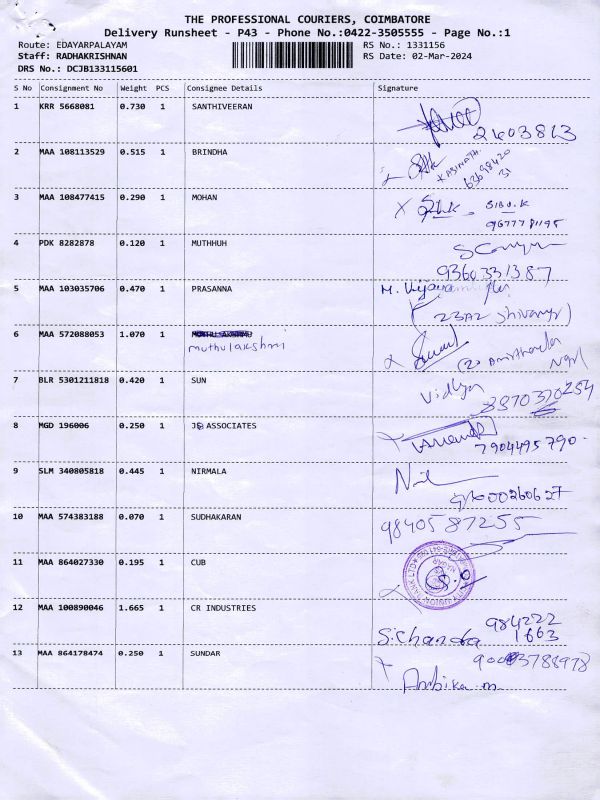 THE PROFESSIONAL COURIERS, COIMBATORE
Delivery Runsheet - P43 - Phone No.:0422-3505555 - Page No.:1
Route: EDAYARPALAYAM
Staff: RADHAKRISHNAN
DRS No.: DCJB133115601
RS No.: 1331156
RS Date: 02-Mar-2024
S No Consignment No Weight PCS Consignee Details Signature
1 KRR 5668081 0.730 1 SANTHIVEERAN
2 MAA 108113529 0.515 1 BRINDHA
3 MAA 108477415 0.290 1 MOHAN
4 PDK 8282878 0.120 1 MUTHHUH
9360331387
5 MAA 103035706 0.470 1 PRASANNA
6 MAA 572088053 1.070 1
muthulakshmi
7 BLR 5301211818 0.420 1 SUN Vidhya
8 MGD 196006 0.250 1 ASSOCIATES
7904495790
9 SLM 340805818 0.445 1 NIRMALA
10 MAA 574383188 0.070 1 SUDHAKARAN 9840587255
11 MAA 864027330 0.195 1 CUB
12 MAA 100890046 1.665 1 CR INDUSTRIES 984222
S.Chandra 1663
13 MAA 864178474 0.250 1 SUNDAR
Ambika.m